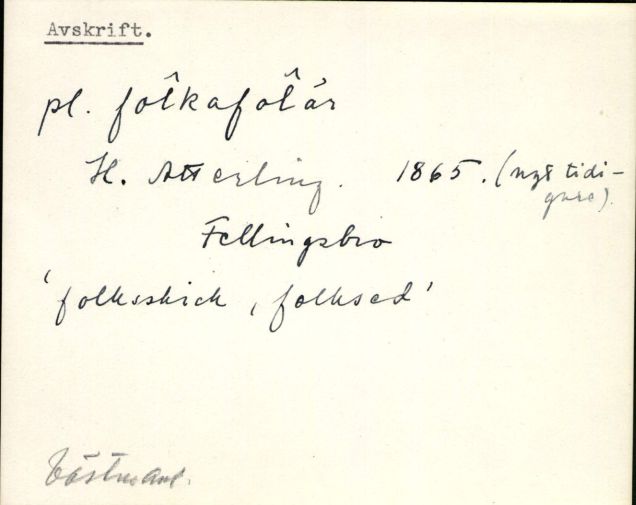 Avskrift.
pl. fôlkafôlår
H. Atterling. 1865. (ngt tidi-
gare).
Fellingsbro
'folkskick, folksed'
Västmanl.